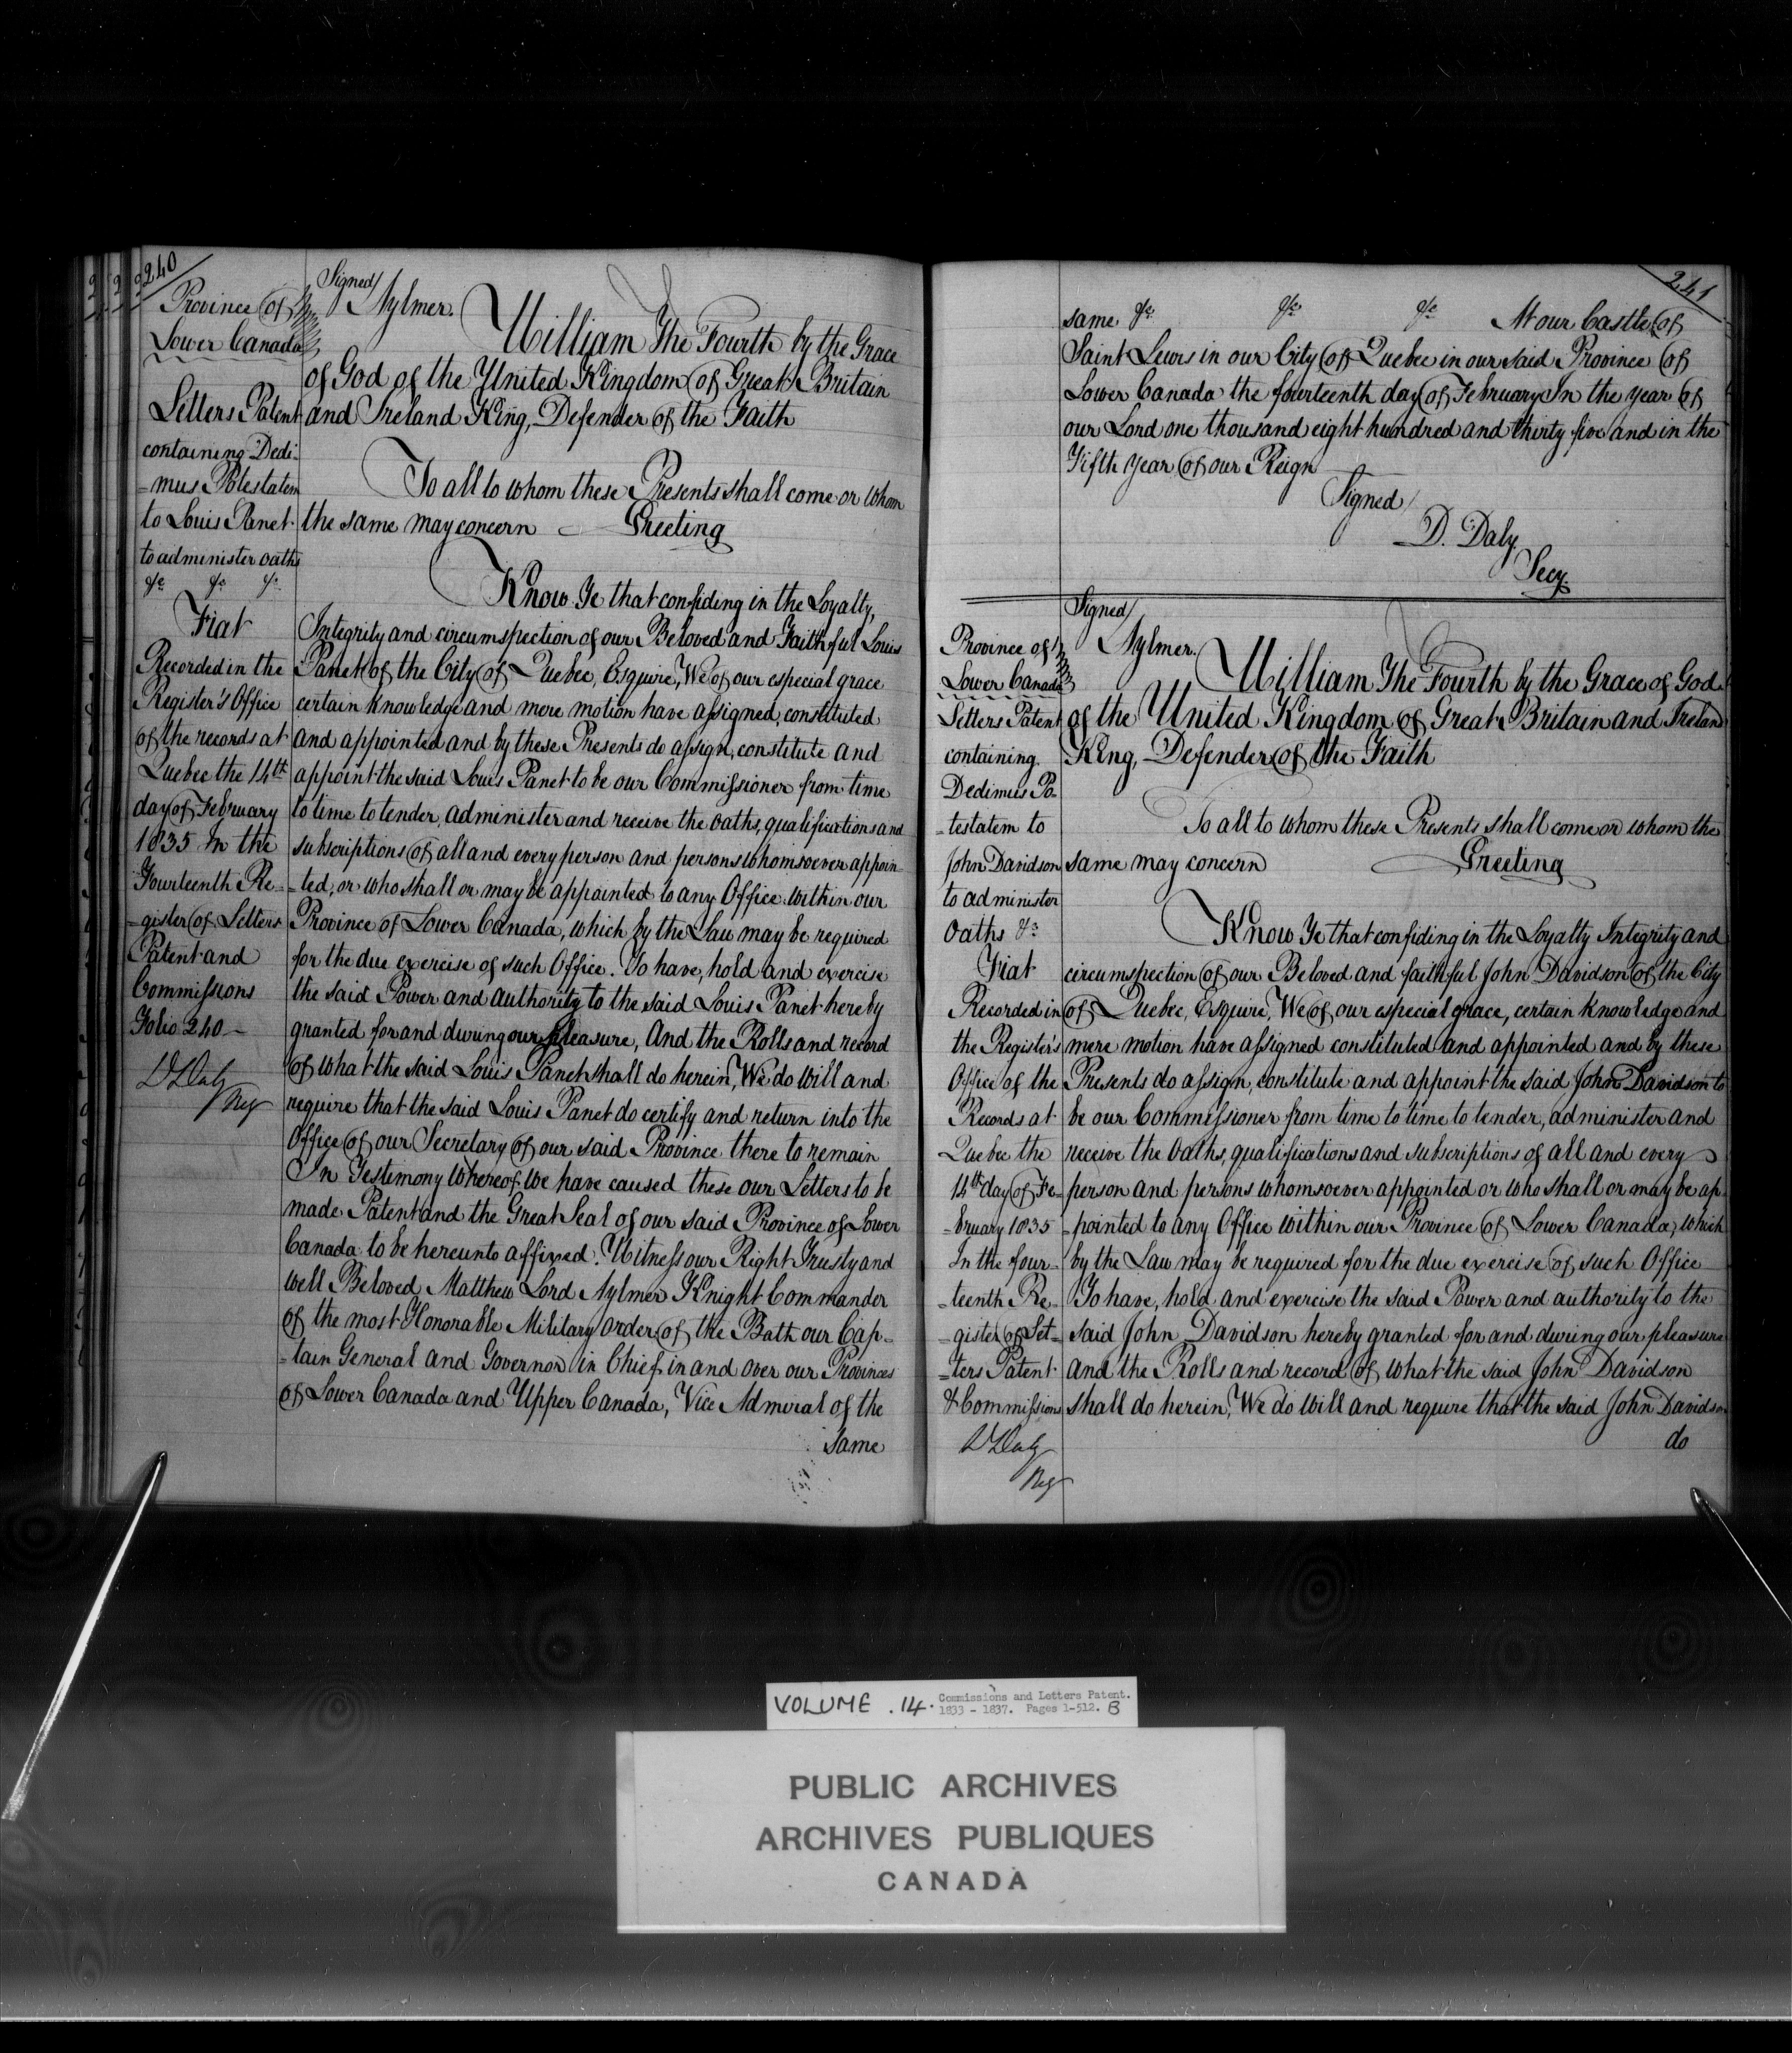 240
Province of
Lower Canada
Letters Patent
containing Dedi-
=mus Potestatem
to Louis Panet
to administer oaths
&c &c &c
Fiat
Recorded in the
Register's Office
of the records at
Quebec the 14th
day of February
1835 In the
Fourteenth Re=
=gister of Letters
Patent and
Commissions
Folio 240 -
D Daly
Reg
Signed/
Aylmer.
William The Fourth by the Grace
of God of the United Kingdom of Great Britain
and Ireland King, Defender of the Faith
To all to whom these Presents shall come or whom
the same may concern - Greeting
Know Ye that confiding in the Loyalty,
Integrity and circumspection of our Beloved and Faithful Louis
Panet of the City of Quebec, Esquire, We of our especial grace
certain knowledge and mere motion have assigned, constituted
and appointed and by these Presents do assign, constitute and
appoint the said Louis Panet to be our Commissioner from time
to time to tender, administer and receive the oaths, qualifications and
subscriptions of all and every person and persons whomsoever appoin
=ted, or who shall or may be appointed to any Office within our
Province of Lower Canada, which by the Law may be required
for the due exercise of such Office. To have, hold and exercise
the said Power and authority to the said Louis Panet hereby
granted for and during our pleasure, And the Rolls and record
of what the said Louis Panet shall do herein, We do will and
require that the said Louis Panet do certify and return into the
Office of our Secretary of our said Province there to remain
In Testimony Whereof We have caused these our Letters to be
made Patent and the Great Seal of our said Province of Lower
Canada to be hereunto affixed. Witness our Right Trusty and
well Beloved Matthew Lord Aylmer Knight Commander
of the most Honorable Military order of the Bath our Cap=
=tain General and Governor in Chief in and over our Provinces
of Lower Canada and Upper Canada, Vice Admiral of the
same
241
same &c &c &c At our Castle of
Saint Lewis in our City of Quebec in our said Province of
Lower Canada the fourteenth day of February In the year of
our Lord one thousand eight hundred and thirty five and in the
Fifth year of our Reign
Signed/
D. Daly
Secy.
Province of
Lower Canada
Letters Patent
containing
Dedimus Po-
=testatem to
John Davidson
to administer
Oaths &c
Fiat
Recorded in
the Register's
Office of the
Records at
Quebec the
14th day of Fe=
=bruary 1835
In the four=
=teenth Re=
=gister of Let=
=ters Patent
& Commissions
D Daly
Reg
Signed/
Aylmer.
William The Fourth by the Grace of God
of the United Kingdom of Great Britain and Irelan
King, Defender of the Faith
To all to whom these Presents shall come or whom the
same may concern Greeting
Know Ye that confiding in the Loyalty Integrity and
circumspection of our Beloved and faithful John Davidson of the City
of Quebec, Esquire, We of our especial grace, certain knowledge and
mere motion have assigned constituted and appointed and by these
Presents do assign, constitute and appoint the said John Davidson to
be our Commissioner from time to time to tender, administer and
receive the Oaths, qualifications and subscriptions of all and every
person and persons whomsoever appointed or who shall or may be ap
=pointed to any Office within our Province of Lower Canada, which
by the Law may be required for the due exercise of such Office
To have, hold and exercise the said Power and authority to the
said John Davidson hereby granted for and during our pleasure
and the Rolls and record of what the said John Davidson
shall do herein, We do Will and require that the said John Davidson
do
VOLUME . 14. Commissions and Letters Patent.
1833 - 1837. Pages 1-512. B
PUBLIC ARCHIVES
ARCHIVES PUBLIQUES
CANADA